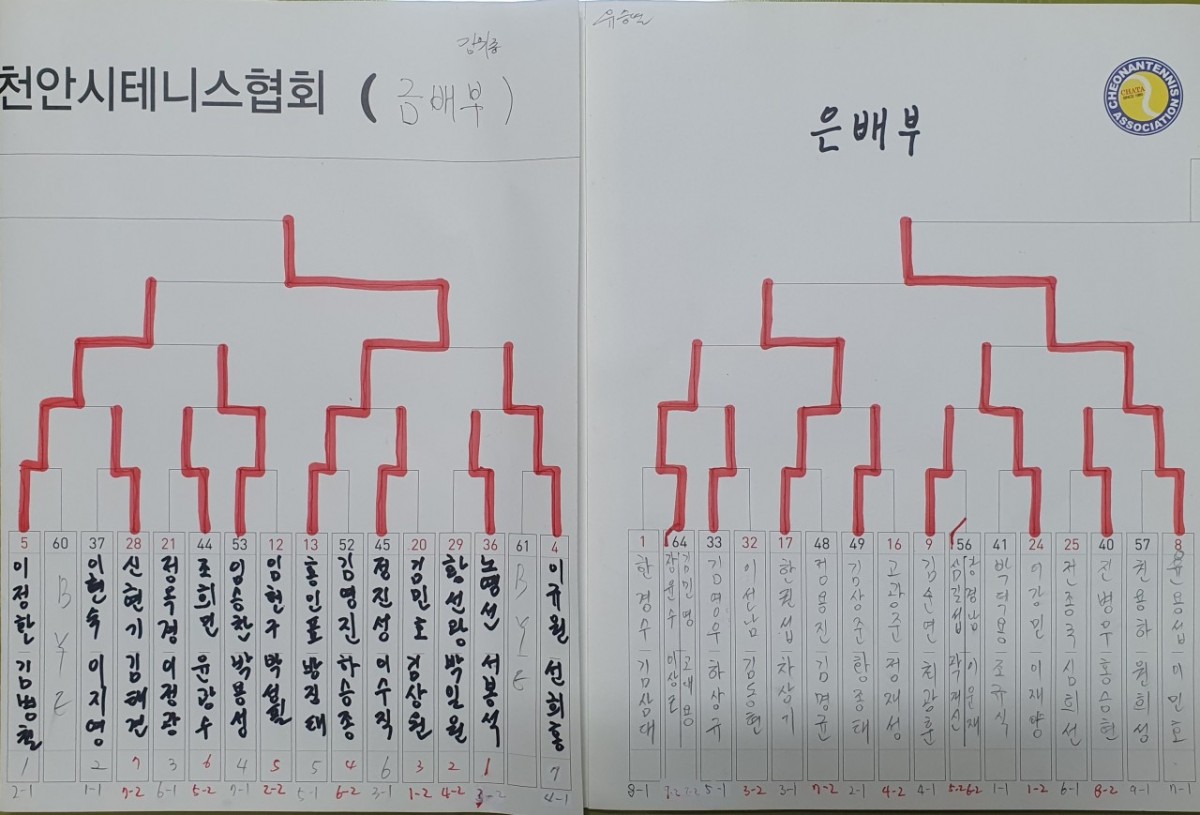 김위중
유승열
천안시테니스협회 (금배부)
은배부
CHEONANTENNIS
ASSOCIATION
CHATA
5 60 37 28 21 44 53 12 13 52 45 20 29 36 61 4
이정한 김범철
BYE
이현숙 이지영
신현기 김태건
정옥경 이정광
조희민 윤광수
임승찬 박용성
임현구 박성필
홍인표 방진태
김영진 하승종
정진성 이수직
김민호 김상원
황선왕 박일원
노명선 서봉석
BYE
이규월 선희홍
1 2 7 3 6 4 5 5 4 6 3 2 1 7
2-1 1-1 7-2 6-1 5-2 7-1 2-2 5-1 6-2 3-1 1-2 4-2 3-2 4-1
1 64 33 32 17 48 49 16 9 56 41 24 25 40 57 8
한경수 김삼대
김영우 하상규
이선남 김동현
한필섭 차상기
정용진 김명균
김상준 황종태
고광준 정재성
김수면 최광훈
박덕용 조규식
이강민 이재량
전종국 심희선
진병우 홍승현
천용하 원희성
윤용섭 이민호
8-1 5-1 3-2 3-1 7-2 2-1 4-2 4-1 5-2 6-2 1-1 1-2 6-1 8-2 9-1 7-1